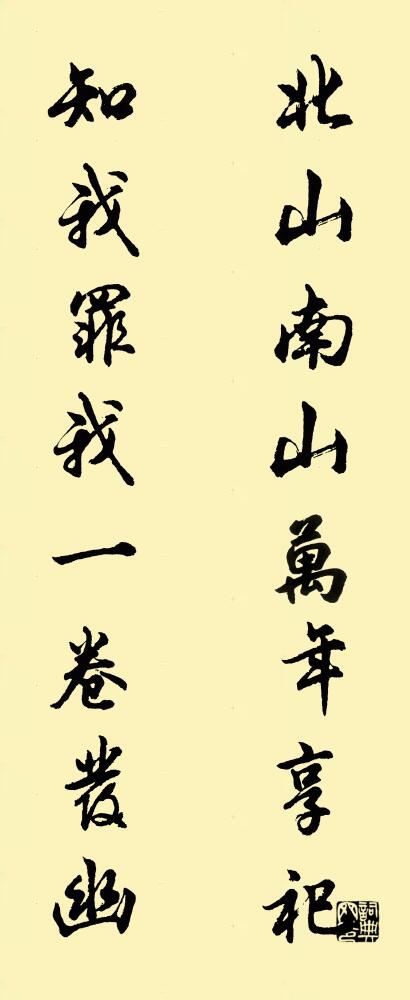 北山南山萬年享祀
知我罪我一卷發幽